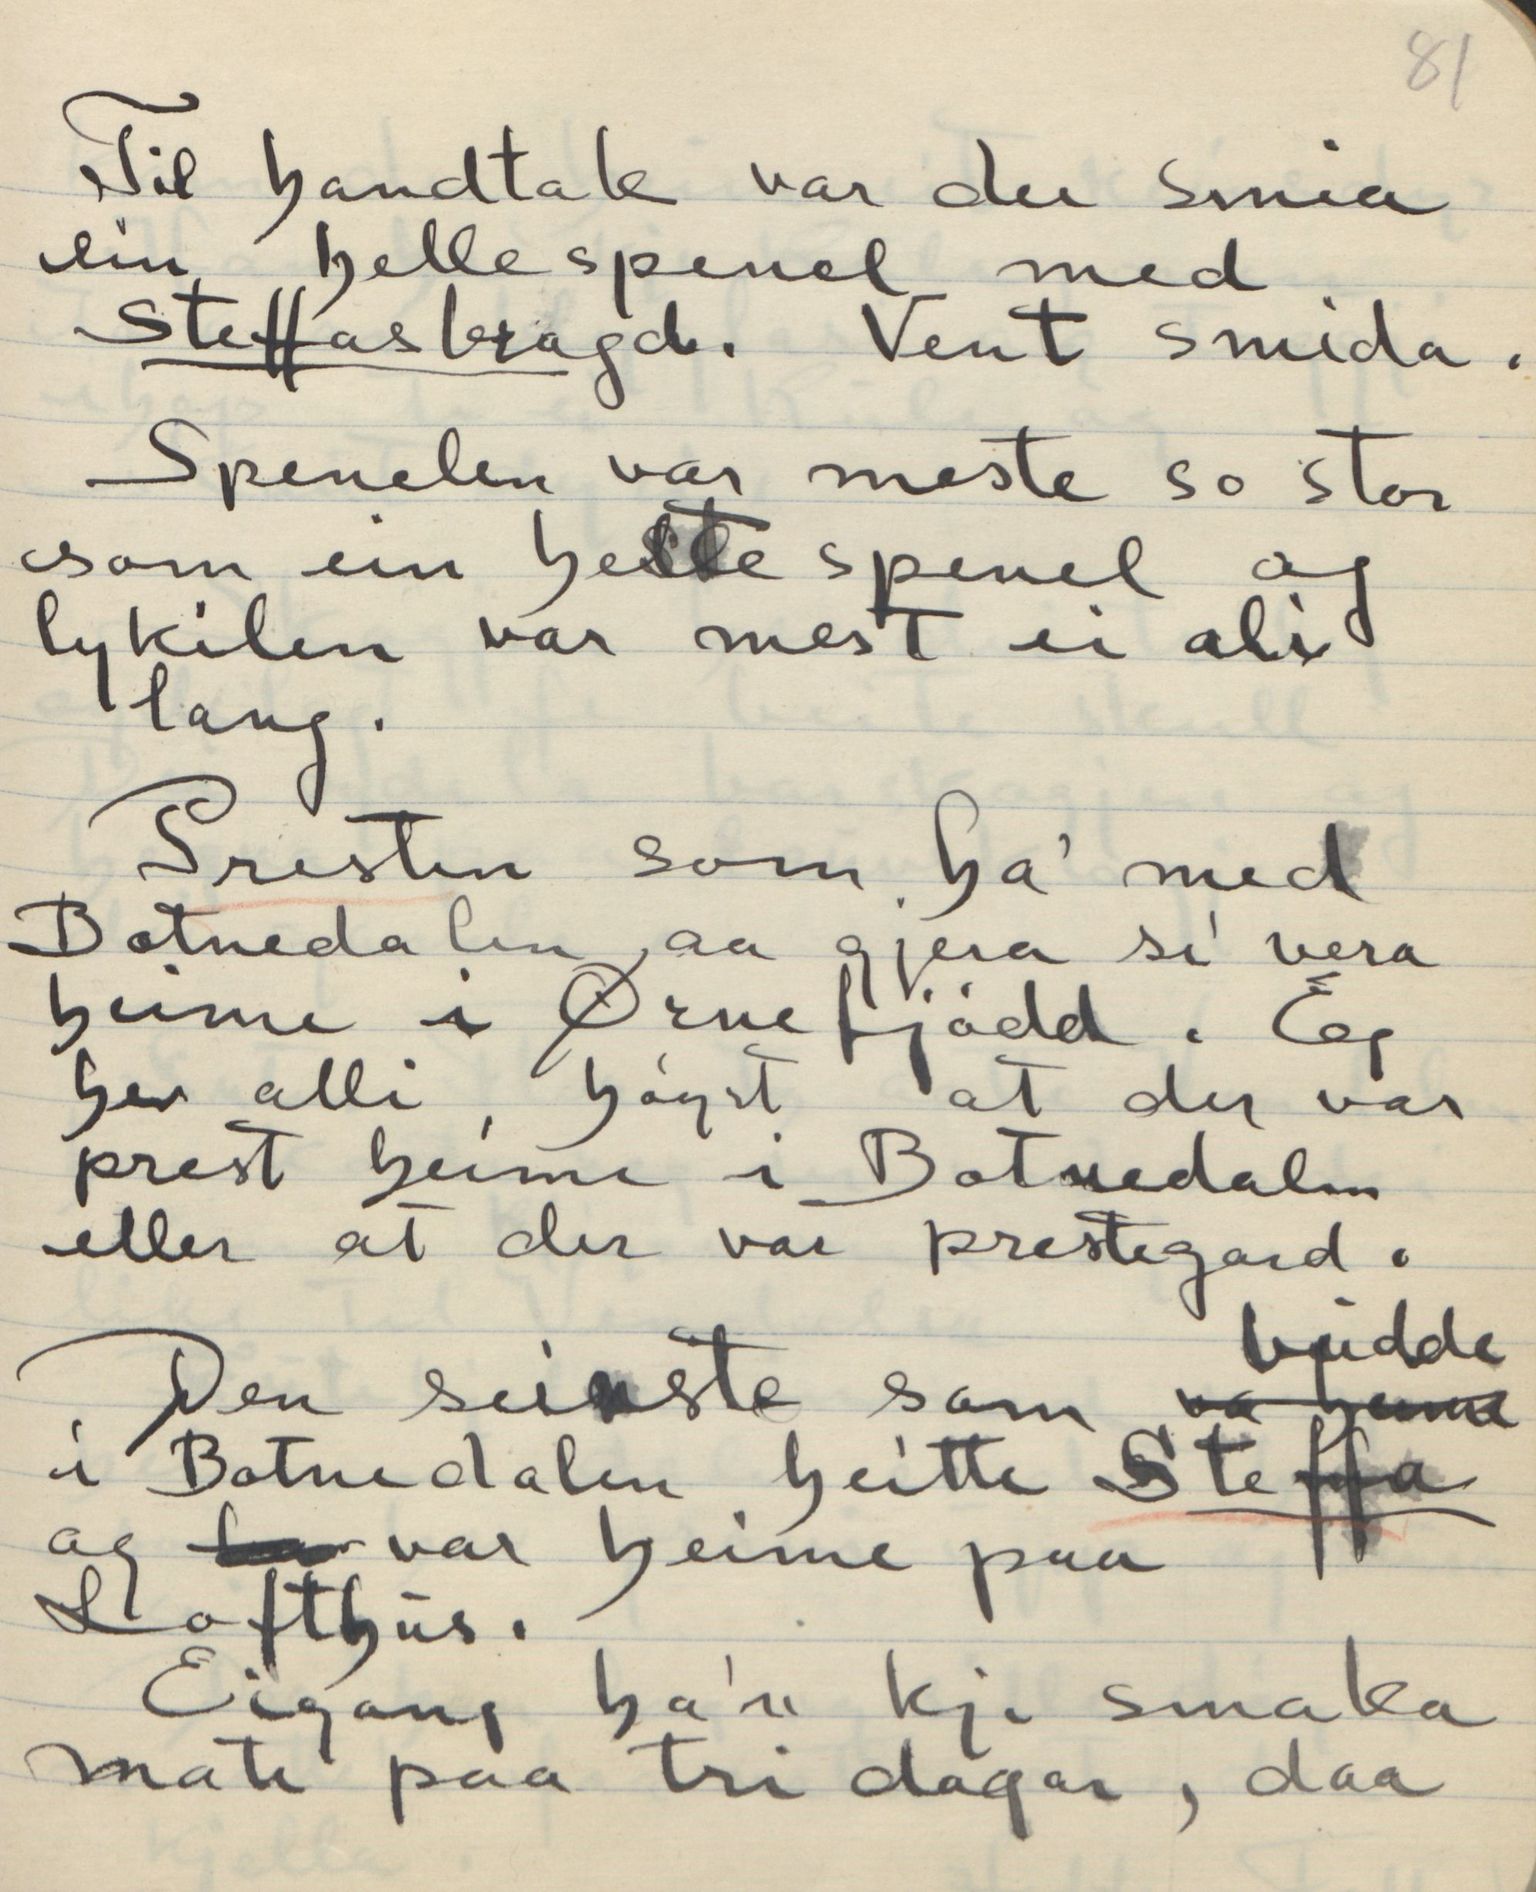 81
Til handtak var der smia
ein hellespenel med
Steffasbragd. Vent smida.
Spenelen var meste so stor
som ein hestespenel og
lykilen var mest ei ali
lang.
Presten som ha' med
Botnedalen aa gjera si' vera
heime i Ørnefjødd. Eg
hev alli högst at der var
prest heime i Botnedalen
eller at der var prestegard.
budde
Den seinste som va heime
i Botnedalen heitte Steffa
og ha var heime paa
Lofthus.
Eigang ha'n kje smaka
mate paa tri dagar, daa